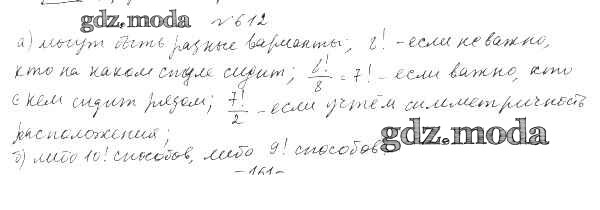 gdz.moda №612
а) могут быть разные варианты; 8! - если неважно,
кто на каком стуле сидит; 8!/8 = 7! - если важно, кто
с кем сидит рядом; 7!/2 - если учтём симметричность
расположения;
gdz.moda
б) либо 10! способов, либо 9! способов.
-161-